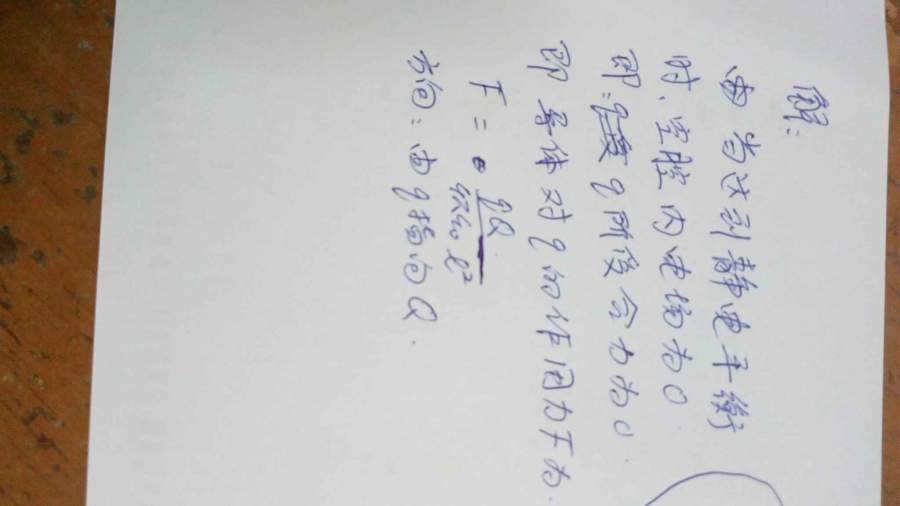 解:
由 当达到静电平衡
时、空腔内电场为0
即: q所受合力为0
即 导体对q的作用力F为.
F = qQ / 4πε₀ l²
方向: 由q指向Q.